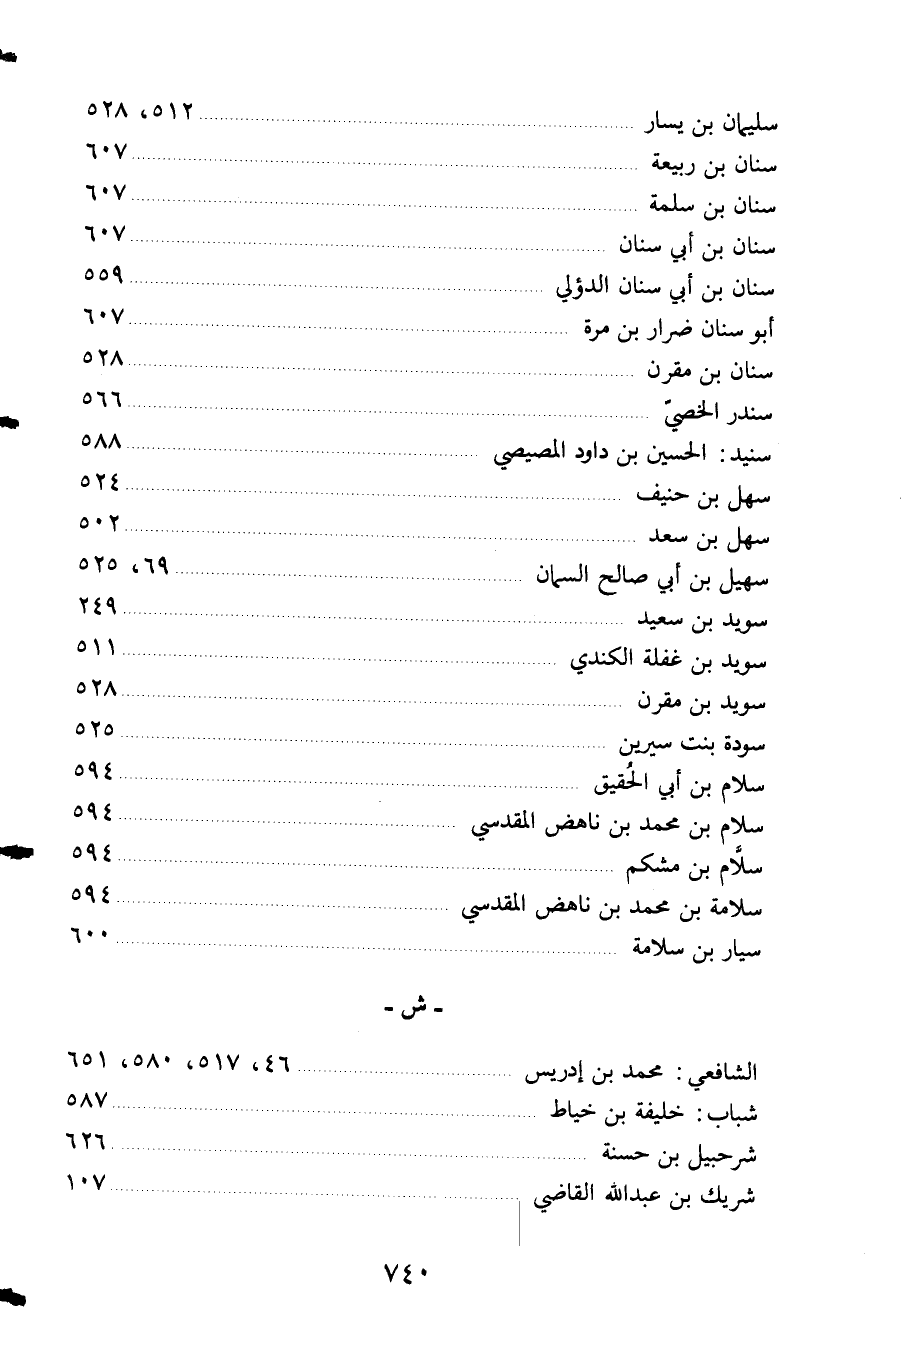 سليمان بن يسار ٥١٢، ٥٢٨
سنان بن ربيعة ٦٠٧
سنان بن سلمة ٦٠٧
سنان بن أبي سنان ٦٠٧
سنان بن أبي سنان الدؤلي ٥٥٩
أبو سنان ضرار بن مرة ٦٠٧
سنان بن مقرن ٥٢٨
سندر الخصيّ ٥٦٦
سنيد: الحسين بن داود المصيصي ٥٨٨
سهل بن حنيف ٥٢٤
سهل بن سعد ٥٠٢
سهيل بن أبي صالح السمان ٦٩، ٥٢٥
سويد بن سعيد ٢٤٩
سويد بن غفلة الكندي ٥١١
سويد بن مقرن ٥٢٨
سودة بنت سيرين ٥٢٥
سلام بن أبي الحُقيق ٥٩٤
سلام بن محمد بن ناهض المقدسي ٥٩٤
سلَّام بن مشكم ٥٩٤
سلامة بن محمد بن ناهض المقدسي ٥٩٤
سيار بن سلامة ٦٠٠
- ش -
الشافعي: محمد بن إدريس ٤٦، ٥١٧، ٥٨٠، ٦٥١
شباب: خليفة بن خياط ٥٨٧
شرحبيل بن حسنة ٦٢٦
شريك بن عبدالله القاضي ١٠٧
٧٤٠